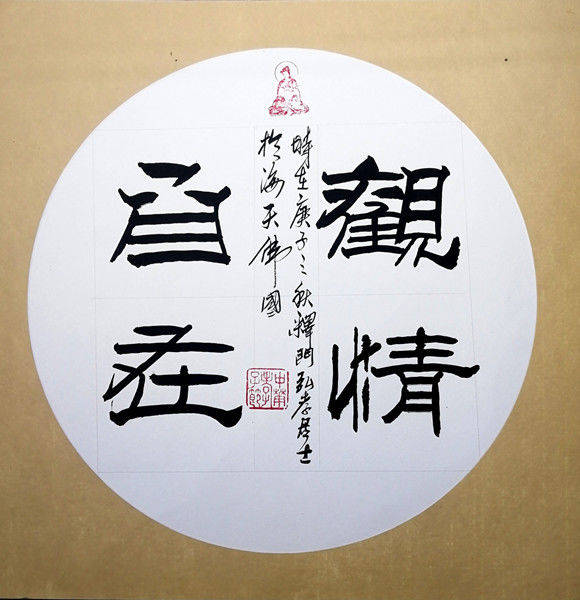 觀情
時在庚子之秋釋門弘孝居士
於海天佛國
自在